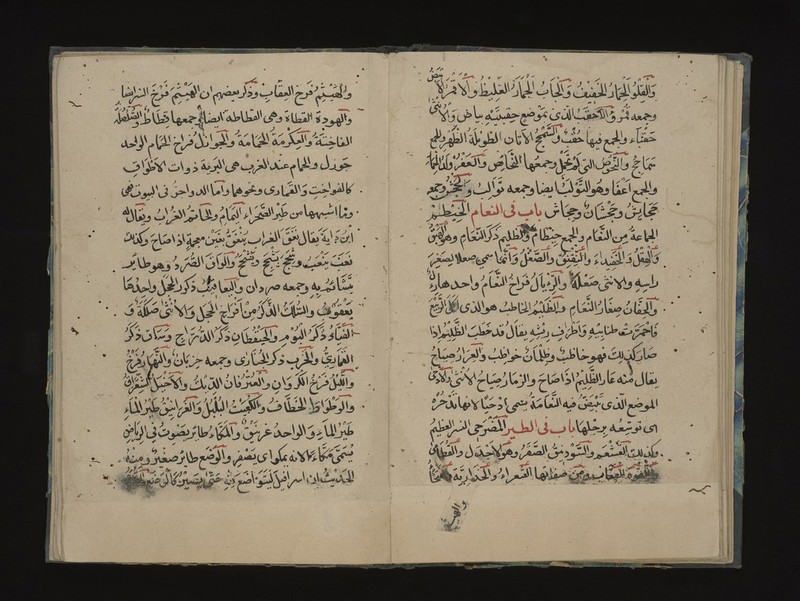 والقلو الحمار الخفيف والجاب الحمار الغليظ والاقمر الابيض
وجمعه قمر والاحقب الذى بموضع حقيبته بياض والانثى
حقباء والجمع فيها حقب والسمحج الاتان الطويلة الظهر والجمع
سماحج والنحوص التى لم تحمل وجمعها النحائص والعفو ولد الحمار
والجمع اعفا وهو التولب ايضا وجمعه توالب والجحش وجمعه
جحايش وجحشان وجحاش باب فى النعام الخيط
الجماعة من النعام والجمع خيطان والظليم ذكر النعام وهو الهيق
والهقل والنقنق والصعل وانما سمي صعلا لصغر
راسه والانثى صعلة والريال فراخ النعام واحدها رال
والحفان صغار النعام والظليم الخاضب هو الذى اكل الربيع
فاحمرت ظنابيبه واطراف ريشه يقال قد خضب الظليم اذا
صار كذلك فهو خاضب وظلمان خواضب والعرار صياح
يقال منه عار الظليم اذا صاح والزمار صياح الانثى والادحى
الموضع الذى تبيض فيه النعامة سمى ادحيا لانها تدحوه
اى توسعه برجلها باب فى الطير المضرحى النسر العظيم
وكذلك القشعم والسوذنق الصقر وهو الاجدل والقطامى
واللقوة العقاب ومن صفاتها الشعواء والخدارية
والهيثم
والهيثم فرخ العقاب وذكر بعضهم ان الهيثم فرخ النسر ايضا
والهوذة القطاة وهى الغطاطه ايضا وجمعها غطاط والصلصلة
الفاختة والعكرمة الحمامة والجوازل فراخ الحمام الواحد
جوزل والحمام عند العرب هى البرية ذوات الاطواق
كالفواخت والقمارى ونحوهما واما الدواجن فى البيوت فهى
وما اشبهها من طير الصحراء اليمام والحاتم الغراب ويقال له
ابن داية يقال نغق الغراب ينغق بغين معجمة اذا صاح وكذلك
نعب ينعب وشحج يشحج والواق الصرد وهو طاير
يتشائم به وجمعه صردان واليعاقيب ذكور الحجل واحدها
يعقوب والسلك الذكر من افراخ الحجل والانثى سلكة و
الفياد ذكر البوم والحيقطان ذكر الدراج وساق ذكر
القمارى والخرب ذكر الحبارى وجمعه خربان والنهار فرخ
والليل فرخ الكروان والعترفان الديك والاخيل الشقراق
والوطواط الخطاف والكعيت البلبل والغرانيق طير الماء
طير الماء الواحد غرنيق والمكاء طائر يصوت فى الرياض
يسمى مكاء لانه يمكو اى يصفر والوصع طائر صغير ومنه
الحديث ان اسرافيل ليتواضع لله حتى يصير كالوصع